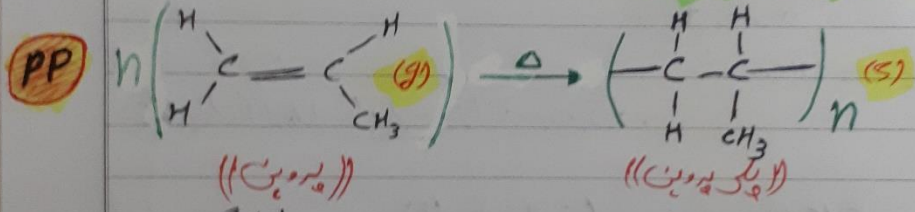 PP n ( H H C = C H CH3 (g) ) Δ → ( H H — C — C — H CH3 ) n (s)
((پروپن)) ((پلی پروپن))